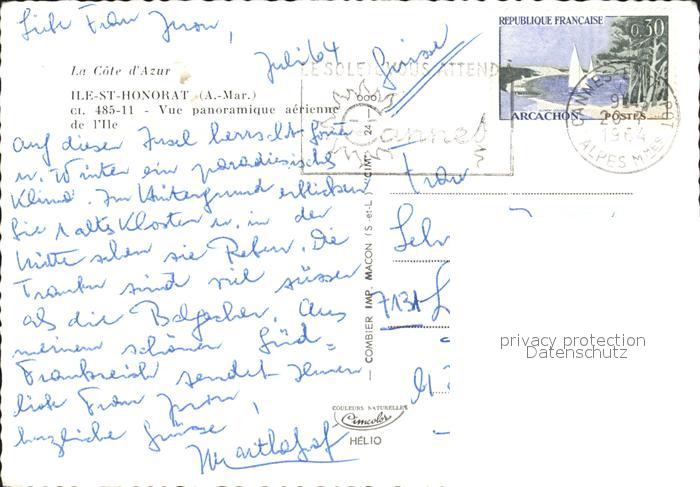 Liebe Frau
Juli 64
Grüsse
La Côte d'Azur
ILE-ST-HONORAT (A.-Mar.)
CI. 485-11 - Vue panoramique aérienne
de l'Ile
REPUBLIQUE FRANÇAISE
0,30
ARCACHON
POSTES
LE SOLEIL VOUS ATTEND
Cannes
CANNES
24
1964
ALPES MMES
auf dieser Insel herrscht
u. Winter ein paradiesisches
Klima. Im Hintergrund erblicken
Sie altes Kloster u. in der
Mitte sehen sie Reben. Die
Trauben sind viel süsser
als die Balgacher. Aus
meinem schönen Süd-
Frankreich sendet Ihnen
liebe Frau
herzliche Grüsse
COMBIER IMP. MACON (S.-et-L.) "CIM"
Frau
7131 L
COULEURS NATURELLES
Cimcolor
HÉLIO
privacy protection
Datenschutz